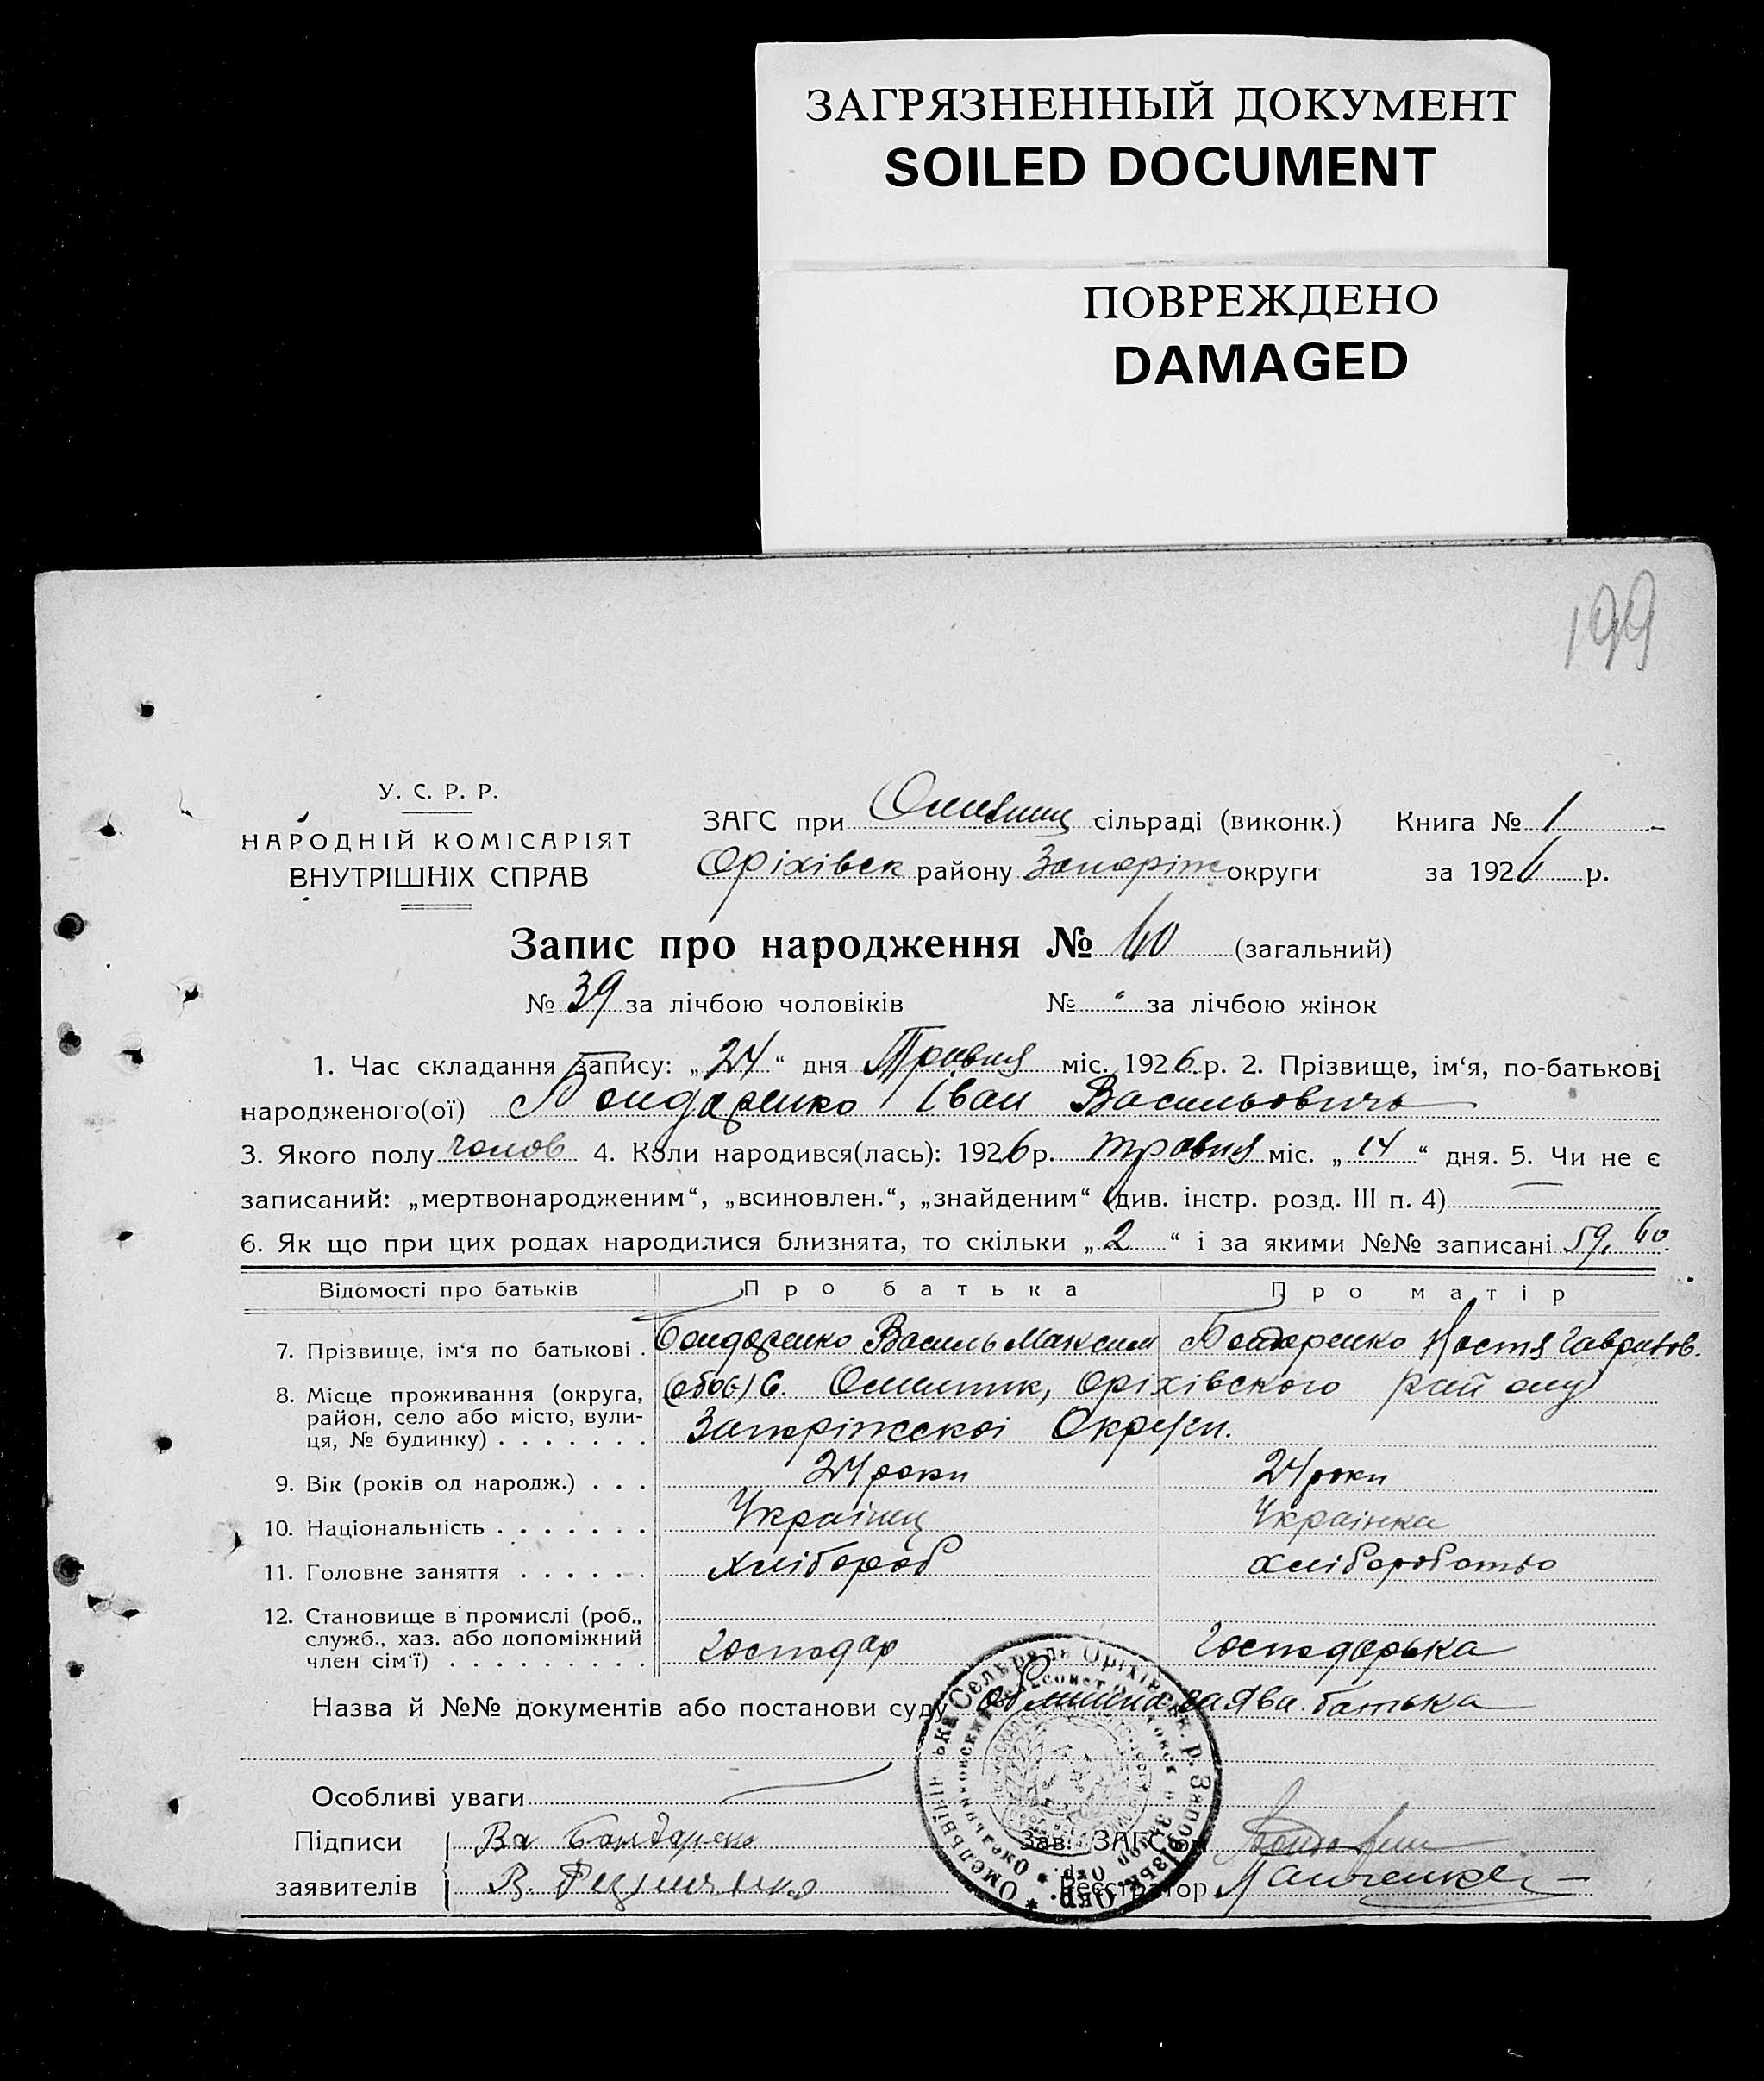 ЗАГРЯЗНЕННЫЙ ДОКУМЕНТ
SOILED DOCUMENT
ПОВРЕЖДЕНО
DAMAGED
199
У. С. Р. Р.
НАРОДНІЙ КОМІСАРІЯТ
ВНУТРІШНІХ СПРАВ
ЗАГС при сільраді (виконк.) Книга № 1
Оріхівськ району Запоріж округи за 1926 р.
Запис про народження № 60 (загальний)
№ 39 за лічбою чоловіків № " за лічбою жінок
1. Час складання запису: „24“ дня Травня міс. 1926 р. 2. Прізвище, ім‘я, по-батькові
народженого(ої) Бондаренко Іван Васильовичь
3. Якого полу чолов 4. Коли народився(лась): 1926 р. травня міс. „14“ дня. 5. Чи не є
записаний: „мертвонародженим“, „всиновлен.“, „знайденим“ (див. інстр. розд. III п. 4)
6. Як що при цих родах народилися близнята, то скільки „2“ і за якими №№ записані 59, 60.
Відомості про батьків Про батька Про матір
7. Прізвище, ім‘я по батькові . Бондаренко Василь Максим Бондаренко Настя Гаврилов.
8. Місце проживання (округа, район, село або місто, вули- ця, № будинку) . . . . . . .
с. Омельник, Оріхівського району
Запоріжскої Округи.
9. Вік (років од народж.) . . . 24 роки 24 роки
10. Національність . . . . . . . Українец Українка
11. Головне заняття . . . . . . Хлібороб хліборобство
12. Становище в промислі (роб., служб., хаз. або допоміжний член сім‘ї) . . . . . . . . . Господар Господарька
Назва й №№ документів або постанови суду заява батька
Особливі уваги
Підписи Ва Бондаренко Зав. ЗАГС‘ом
заявителів В. Резниченко Реєстратор Панченко